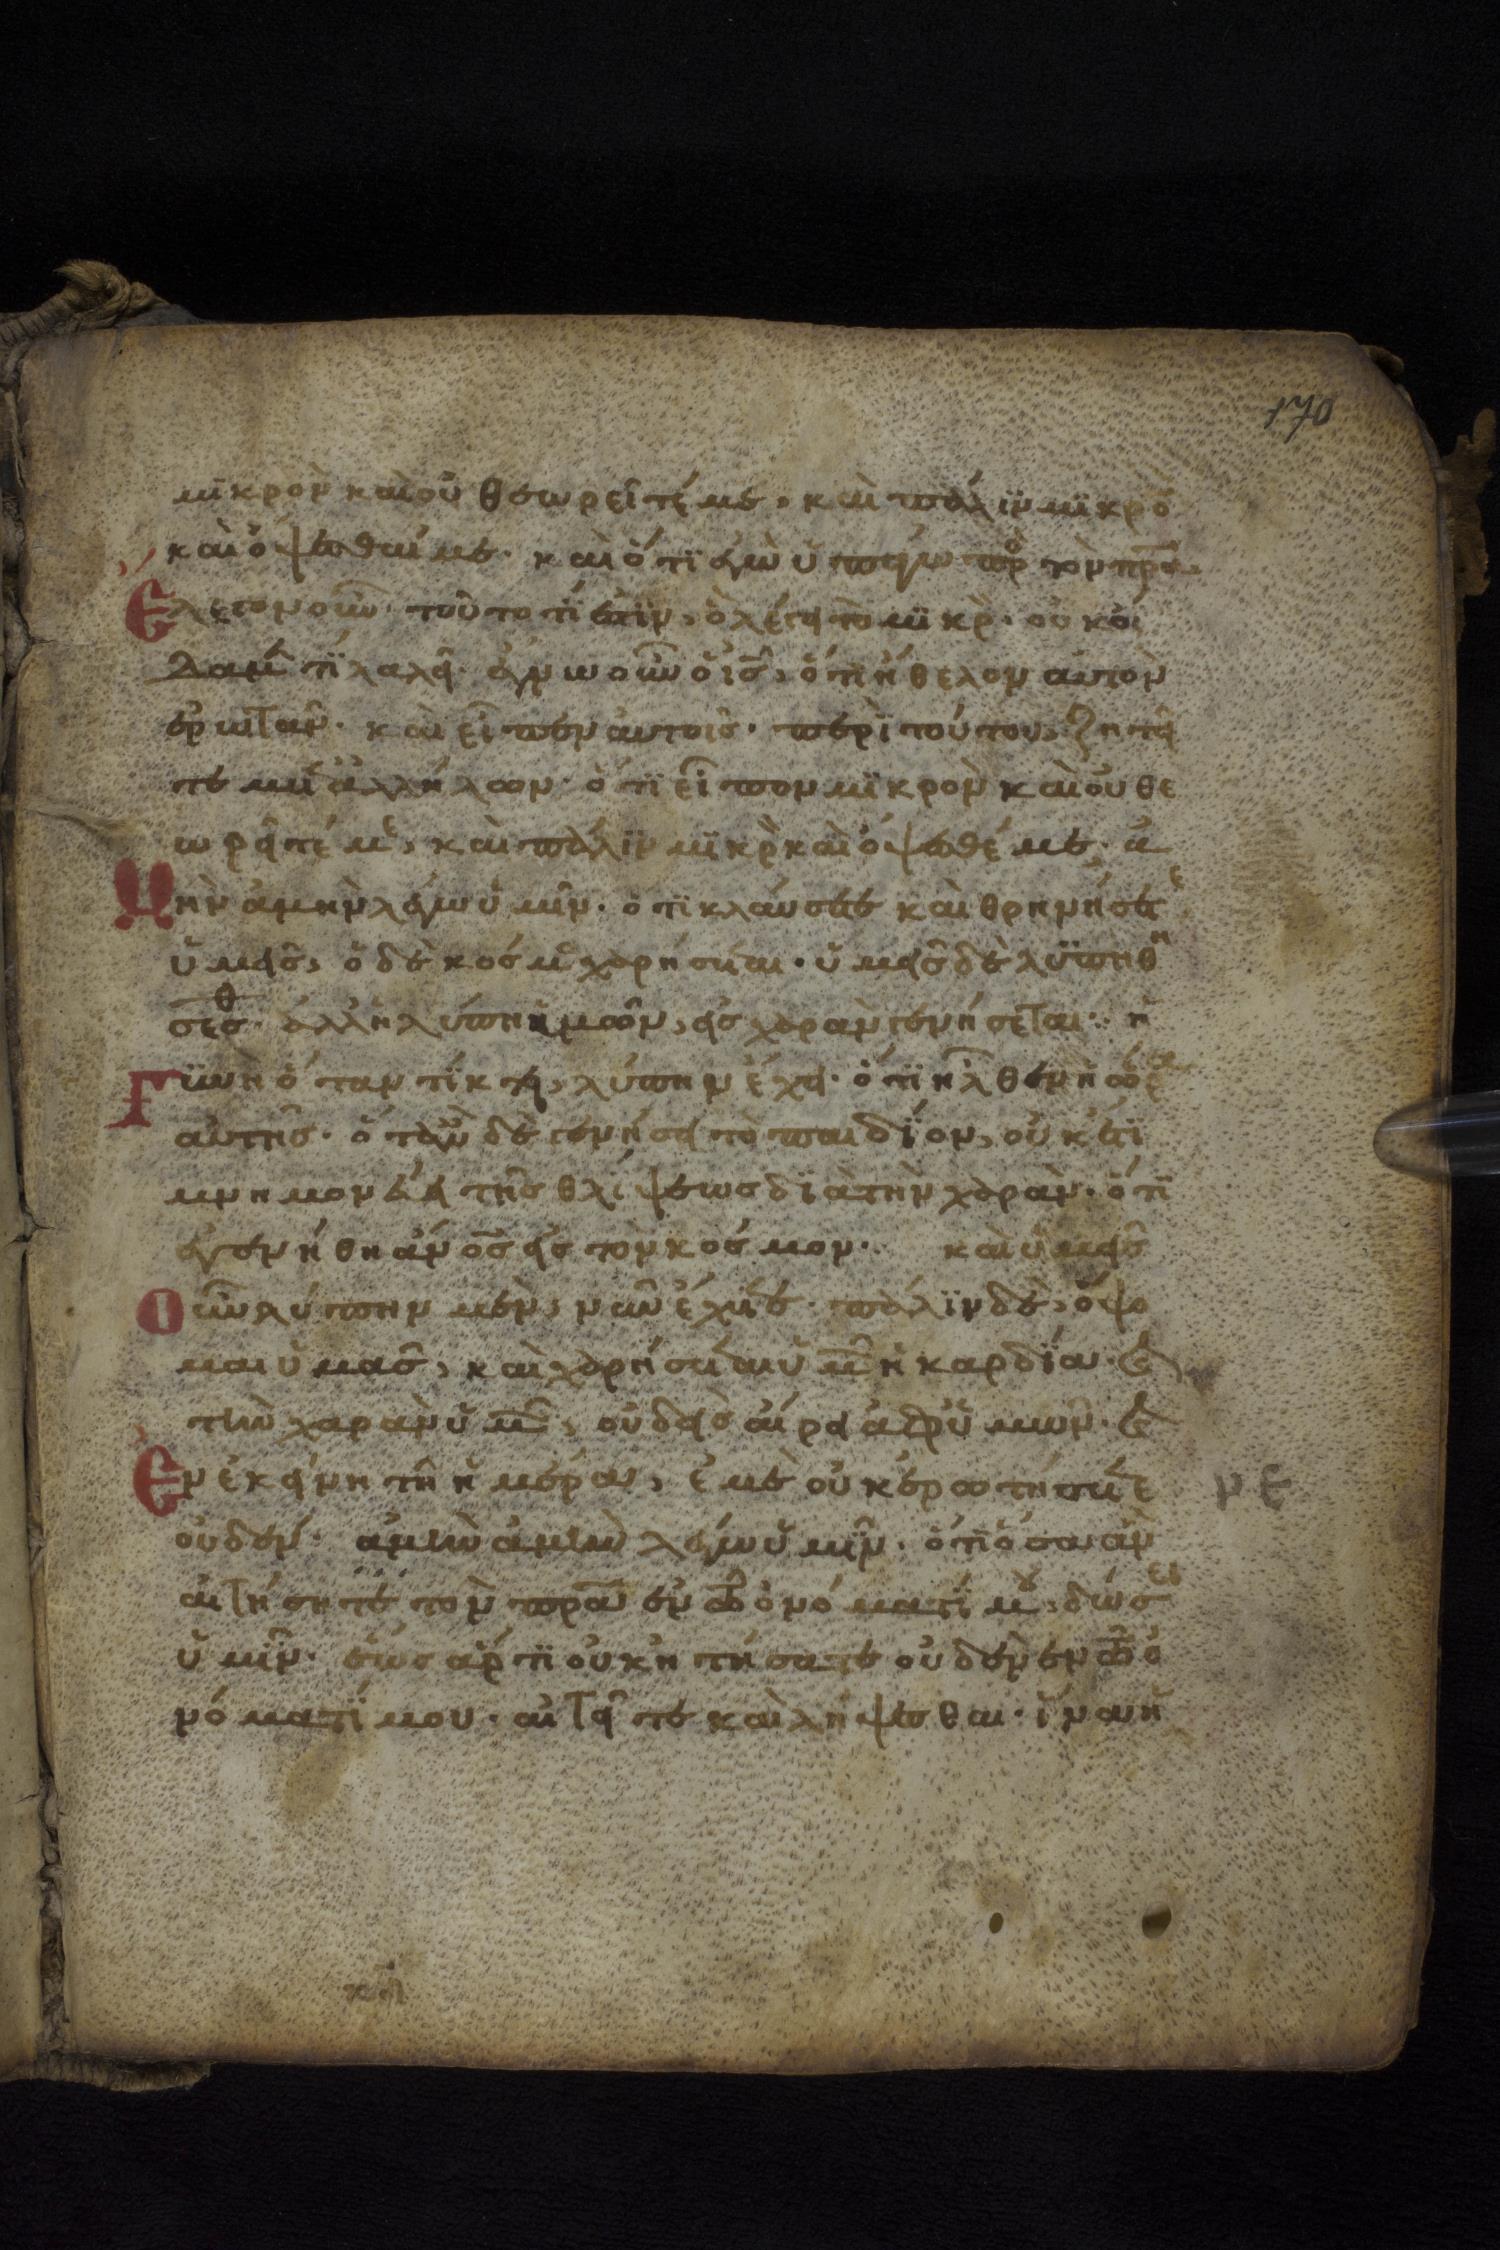 170
μϊκρὸν καὶ οὐ θεωρεῖτέ με, καὶ πάλϊν μϊκρὸ
καὶ ὄψεσθαί με· καὶ ὅτϊ ἐγὼ ὑπάγω πρ τὸν πρα
ἔλεγον οὖν· τοῦτο τί ἐστϊν, ὃ λέγει τὸ μϊκρ· οὐκ οἴ
δαμ τϊ λαλεῖ· ἔγνω οὖν ὁ ις, ὅτι ἤθελον αὐτὸν
ἐρωτᾶν· καὶ εἶπεν αὐτοῖς· περὶ τούτου, ζητεῖ
τε μετ ἀλλήλων· ὅτϊ εἶπον μϊκρὸν καὶ οὐ θε
ωρεῖτέ με, καὶ πάλϊν μϊκρ καὶ ὄψεσθέ με· ἀ
μὴν ἀμὴν λέγω ὑμῖν· ὅτϊ κλαύσετε καὶ θρηνήσετε
ὑμεῖς, ὁ δὲ κόσμ χαρήσεται· ὑμεῖς δὲ λϋπηθή
σεσθ· ἀλλ ἡ λύπη ἡμῶν, εἰς χαρὰν γενήσεται· ἡ
Γϋνὴ ὅταν τίκτει, λύπην ἔχει· ὅτϊ ἦλθεν ἡ ὥρα
αὐτῆς· ὅταν δὲ γενήσει τὸ παιδίον, οὐκέτϊ
μνημονεύει τῆς θλίψεως δϊὰ τὴν χαρὰν· ὅτϊ
ἐγενήθη ἄνος εἰς τὸν κόσμον· καὶ ὑμεῖς
Οὖν λύπην μὲν, νῦν ἔχετε· πάλϊν δὲ, ὄψο
μαι ὑμᾶς, καὶ χαρήσεται ὑμ ἡ καρδία· καὶ
τὴν χαρὰν ὑμ, οὐδεὶς αἴρει ἀφ ὑμῶν· καὶ
ἐν ἐκείνη τῆ ἡμέρα, ἐμὲ οὐκ ἐρωτήσετε
νε
οὐδέν· ἀμὴν ἀμὴν λέγω ὑμῖν· ὅτϊ ὅσα ἂν
αἰτήσητέ τὸν πρα ἐν τῶ ὀνόματί μου, δώσει
ὑμῖν· ἕως ἄρτϊ οὐκ ἠτήσατε οὐδὲν ἐν τῶ ὀ
νόματί μου· αἰτεῖτε καὶ λήψεσθαι· ἵνα ἡ